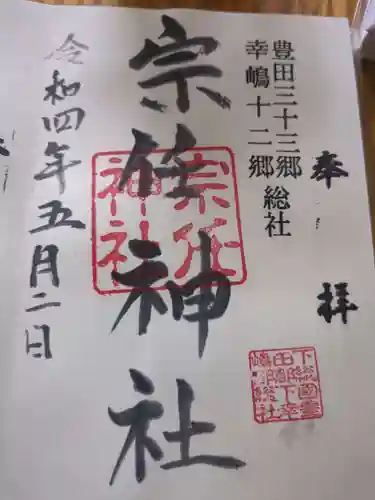 奉拝
豊田三十三郷
幸嶋十二郷
総社
宗任神社
宗任
神社
令和四年五月二日